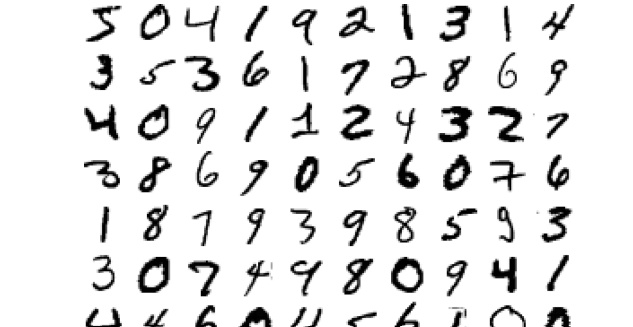 5 0 4 1 9 2 1 3 1 4
3 5 3 6 1 7 2 8 6 9
4 0 9 1 1 2 4 3 2 7
3 8 6 9 0 5 6 0 7 6
1 8 7 9 3 9 8 5 9 3
3 0 7 4 9 8 0 9 4 1